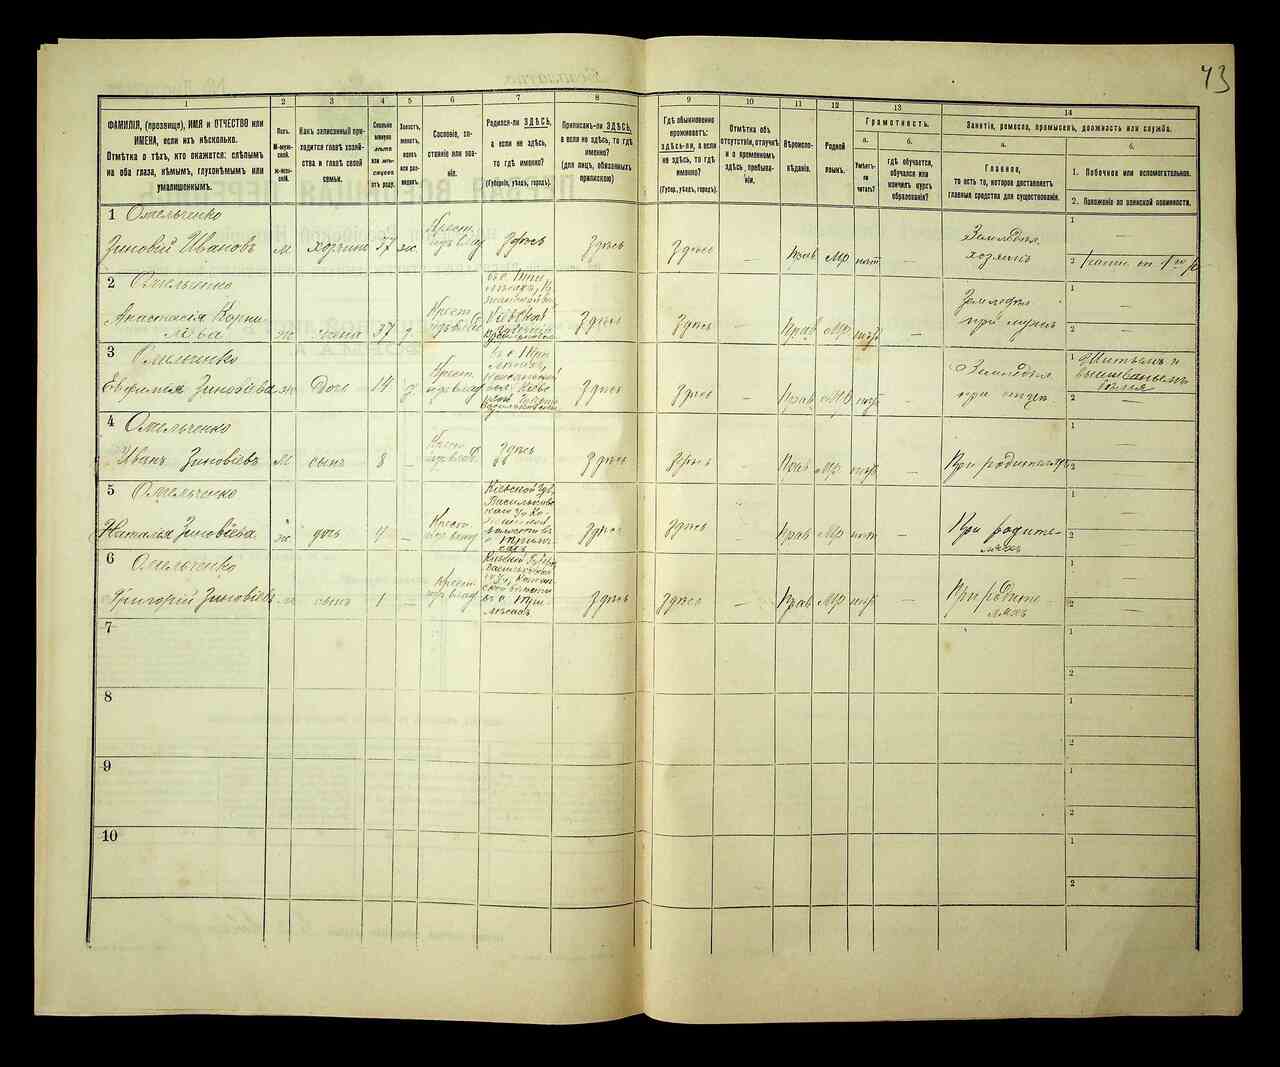 73
1
2
3
4
5
6
7
8
9
10
11
12
13
14
ФАМИЛІЯ, (прозвище), ИМЯ и ОТЧЕСТВО или
ИМЕНА, если ихъ нѣсколько.
Отмѣтка о тѣхъ, кто окажется: слѣпымъ
на оба глаза, нѣмымъ, глухонѣмымъ или
умалишоннымъ.
Полъ.
М-муж-
ской.
Ж-жен-
скій.
Какъ записанный при-
ходится главѣ хозяй-
ства и главѣ своей
семьи.
Сколько
минуло
лѣтъ
или мѣ-
сяцевъ
отъ роду.
Холостъ,
женатъ,
вдовъ
или раз-
веденъ.
Сословіе, со-
стояніе или зва-
ніе.
Родился-ли ЗДѢСЬ,
а если не здѣсь,
то гдѣ именно?
(Губернія, уѣздъ, городъ).
Приписанъ-ли ЗДѢСЬ,
а если не здѣсь, то гдѣ
именно?
(для лицъ, обязанныхъ
припискою)
Гдѣ обыкновенно
проживаетъ:
здѣсь-ли, а если
не здѣсь, то гдѣ
именно?
(Губер., уѣздъ, городъ).
Отмѣтка объ
отсутствіи, отлучкѣ
и о временномъ
здѣсь, пребыва-
ніи.
Вѣроиспо-
вѣданіе.
Родной
языкъ.
Грамотность.
а.
б.
Умѣетъ-
ли
читать?
гдѣ обучается,
обучался или
кончилъ курсъ
образованія?
Занятіе, ремесло, промыселъ, должность или служба.
а.
б.
Главное,
то есть то, которое доставляетъ
главныя средства для существованія.
1. Побочное или вспомогательное.
2. Положеніе по воинской повинности.
1 Омельченко
Зиновій Ивановъ м хозяинъ 37 ж. Крест. Здѣсь Здѣсь Здѣсь — Прав Мр нѣт — Земледѣл. хозяинъ
1 —
2
2 Омельченко
Анастасія Корни
лѣва ж жена 37 з. Крест. Кіевской Здѣсь Здѣсь — Прав Мр нѣт — Земледѣл.
при мужѣ
1 —
2 —
3 Омельченко
Евфимія Зиновіева ж Дочь 14 д. Крест. Здѣсь Здѣсь — Прав Мр нѣт — Земледѣл.
при отцѣ
1 Шитьемъ и
вышиваньемъ
2 —
4 Омельченко
Иванъ Зиновіевъ м сынъ 8 — Крест. Здѣсь Здѣсь Здѣсь — Прав Мр нѣт — При родителяхъ
1 —
2 —
5 Омельченко
Наталья Зиновіева ж дочь 4 — Крест. Кіевской Губ. Здѣсь Здѣсь — Прав Мр нѣт — При родите-
ляхъ
1 —
2 —
6 Омельченко
Григорій Зиновіевъ м сынъ 1 — Крест. Здѣсь Здѣсь — Прав Мр нѣт — При родите-
ляхъ
1 —
2 —
7
1
2
8
1
2
9
1
2
10
1
2